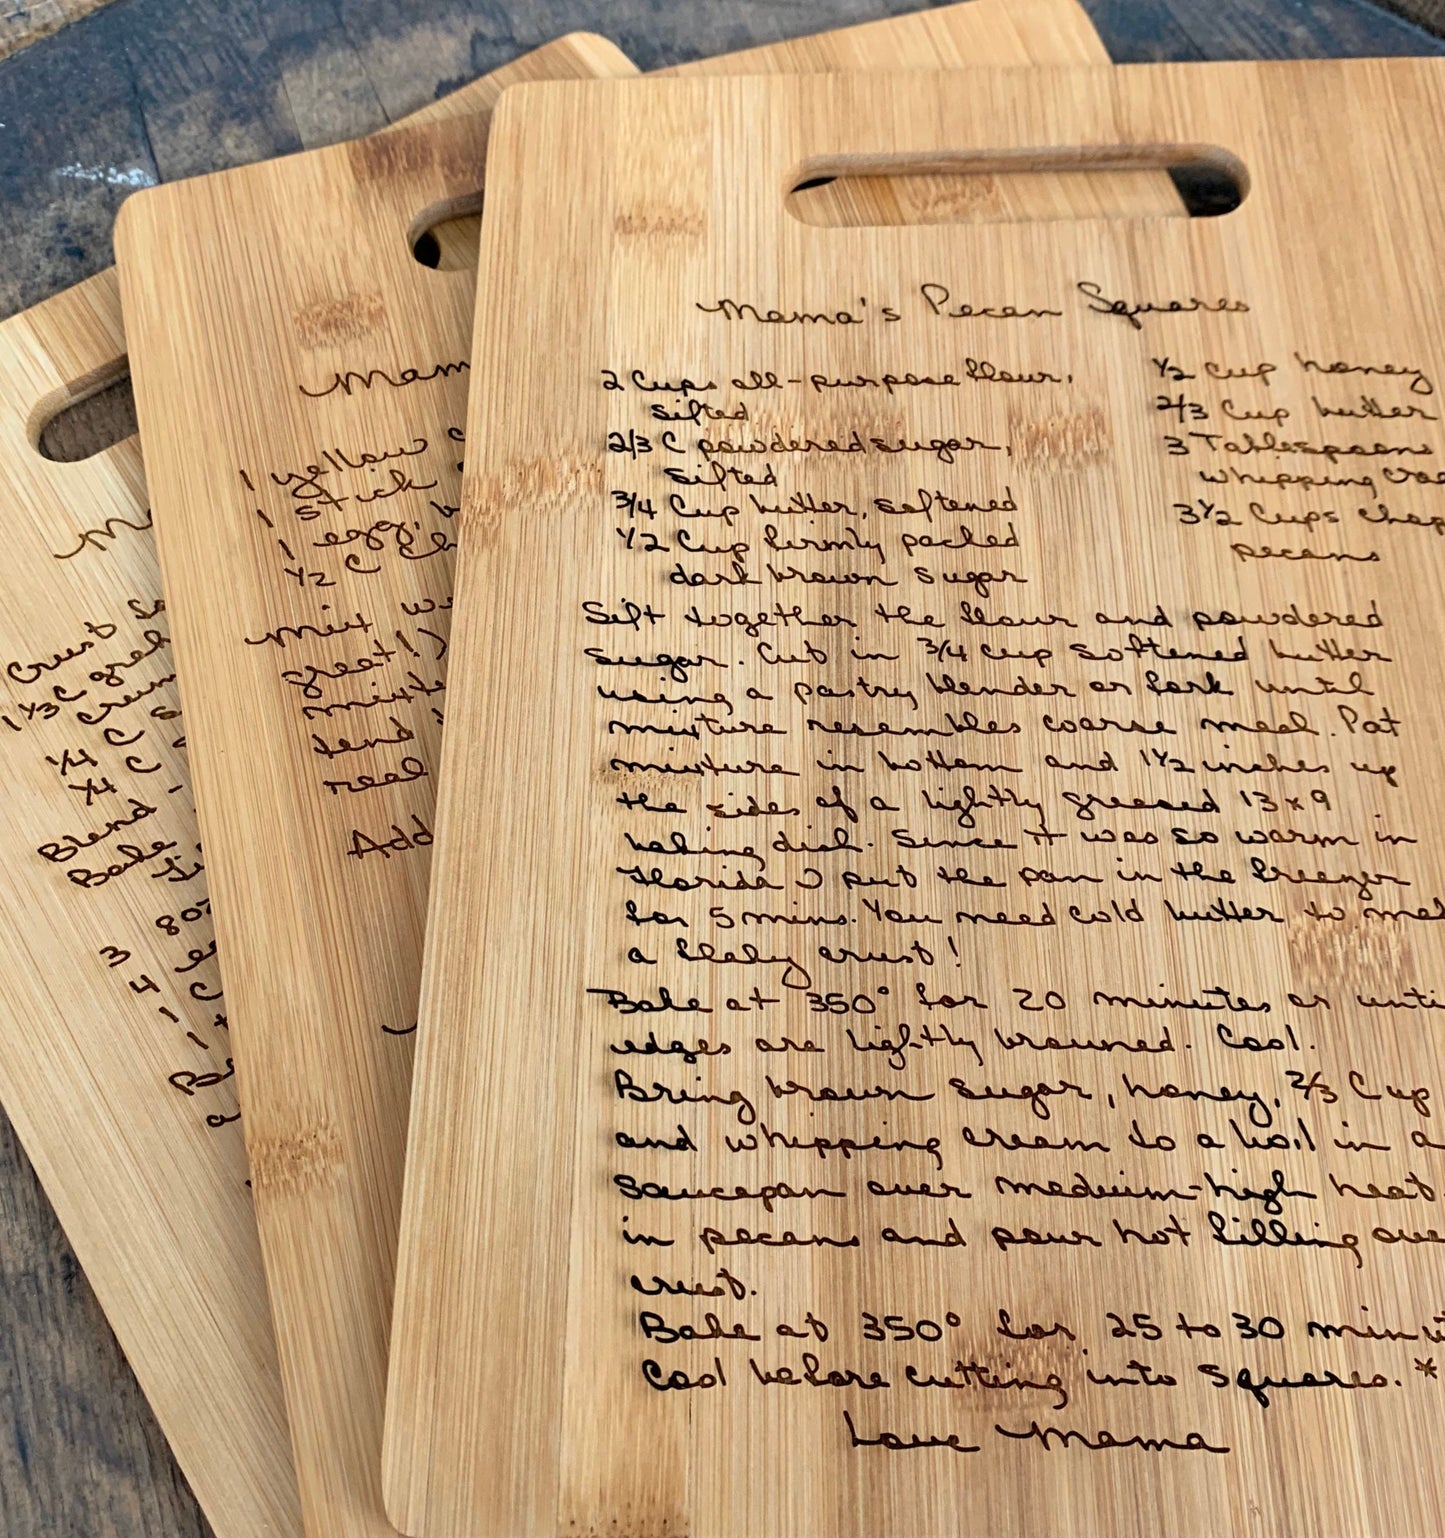 Mama's Pecan Squares
2 Cups all-purpose flour,
sifted
2/3 C powdered sugar,
sifted
3/4 Cup butter, softened
1/2 Cup firmly packed
dark brown sugar
1/2 cup honey
2/3 Cup butter
3 Tablespoons
whipping
3 1/2 Cups
pecans
Sift together the flour and powdered
sugar. Cut in 3/4 cup softened butter
using a pastry blender or fork until
mixture resembles coarse meal. Pat
mixture in bottom and 1 1/2 inches up
the sides of a lightly greased 13x9
baking dish. Since it was so warm in
Florida I put the pan in the freezer
for 5 mins. You need cold butter to
a flaky crust!
Bake at 350° for 20 minutes or
edges are lightly browned. Cool.
Bring brown sugar, honey, 2/3 Cup
and whipping cream to a boil in a
saucepan over medium-high heat.
in pecans and pour hot filling
crust.
Bake at 350° for 25 to 30
Cool before cutting into squares.*
Love Mama
1 yellow
1 stick
1 egg,
1/2 C
Mix
great!)
tend
real
Add
Crust
1 1/3 C
1/4 C
1/4 C
Blend
Bake
3 8oz
4
1
1